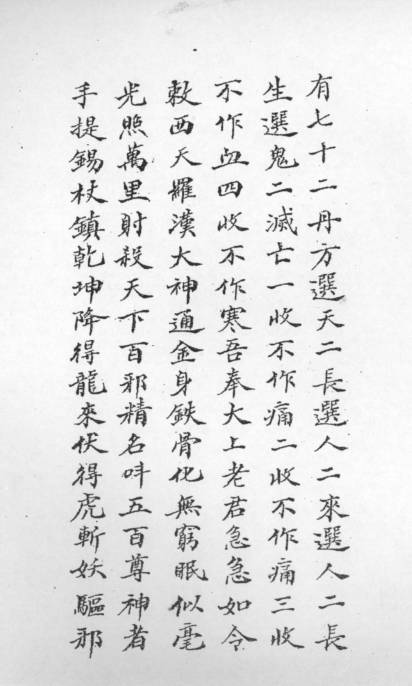 有七十二丹方選天二長選人二來選人二長
生選鬼二滅亡一收不作痛二收不作痛三收
不作血四收不作寒吾奉大上老君急急如令
敕西天羅漢大神通金身鉄骨化無窮眠似毫
光照萬里射殺天下百邪精名吽五百尊神者
手提錫杖鎮乾坤降得龍來伏得虎斬妖驅邪